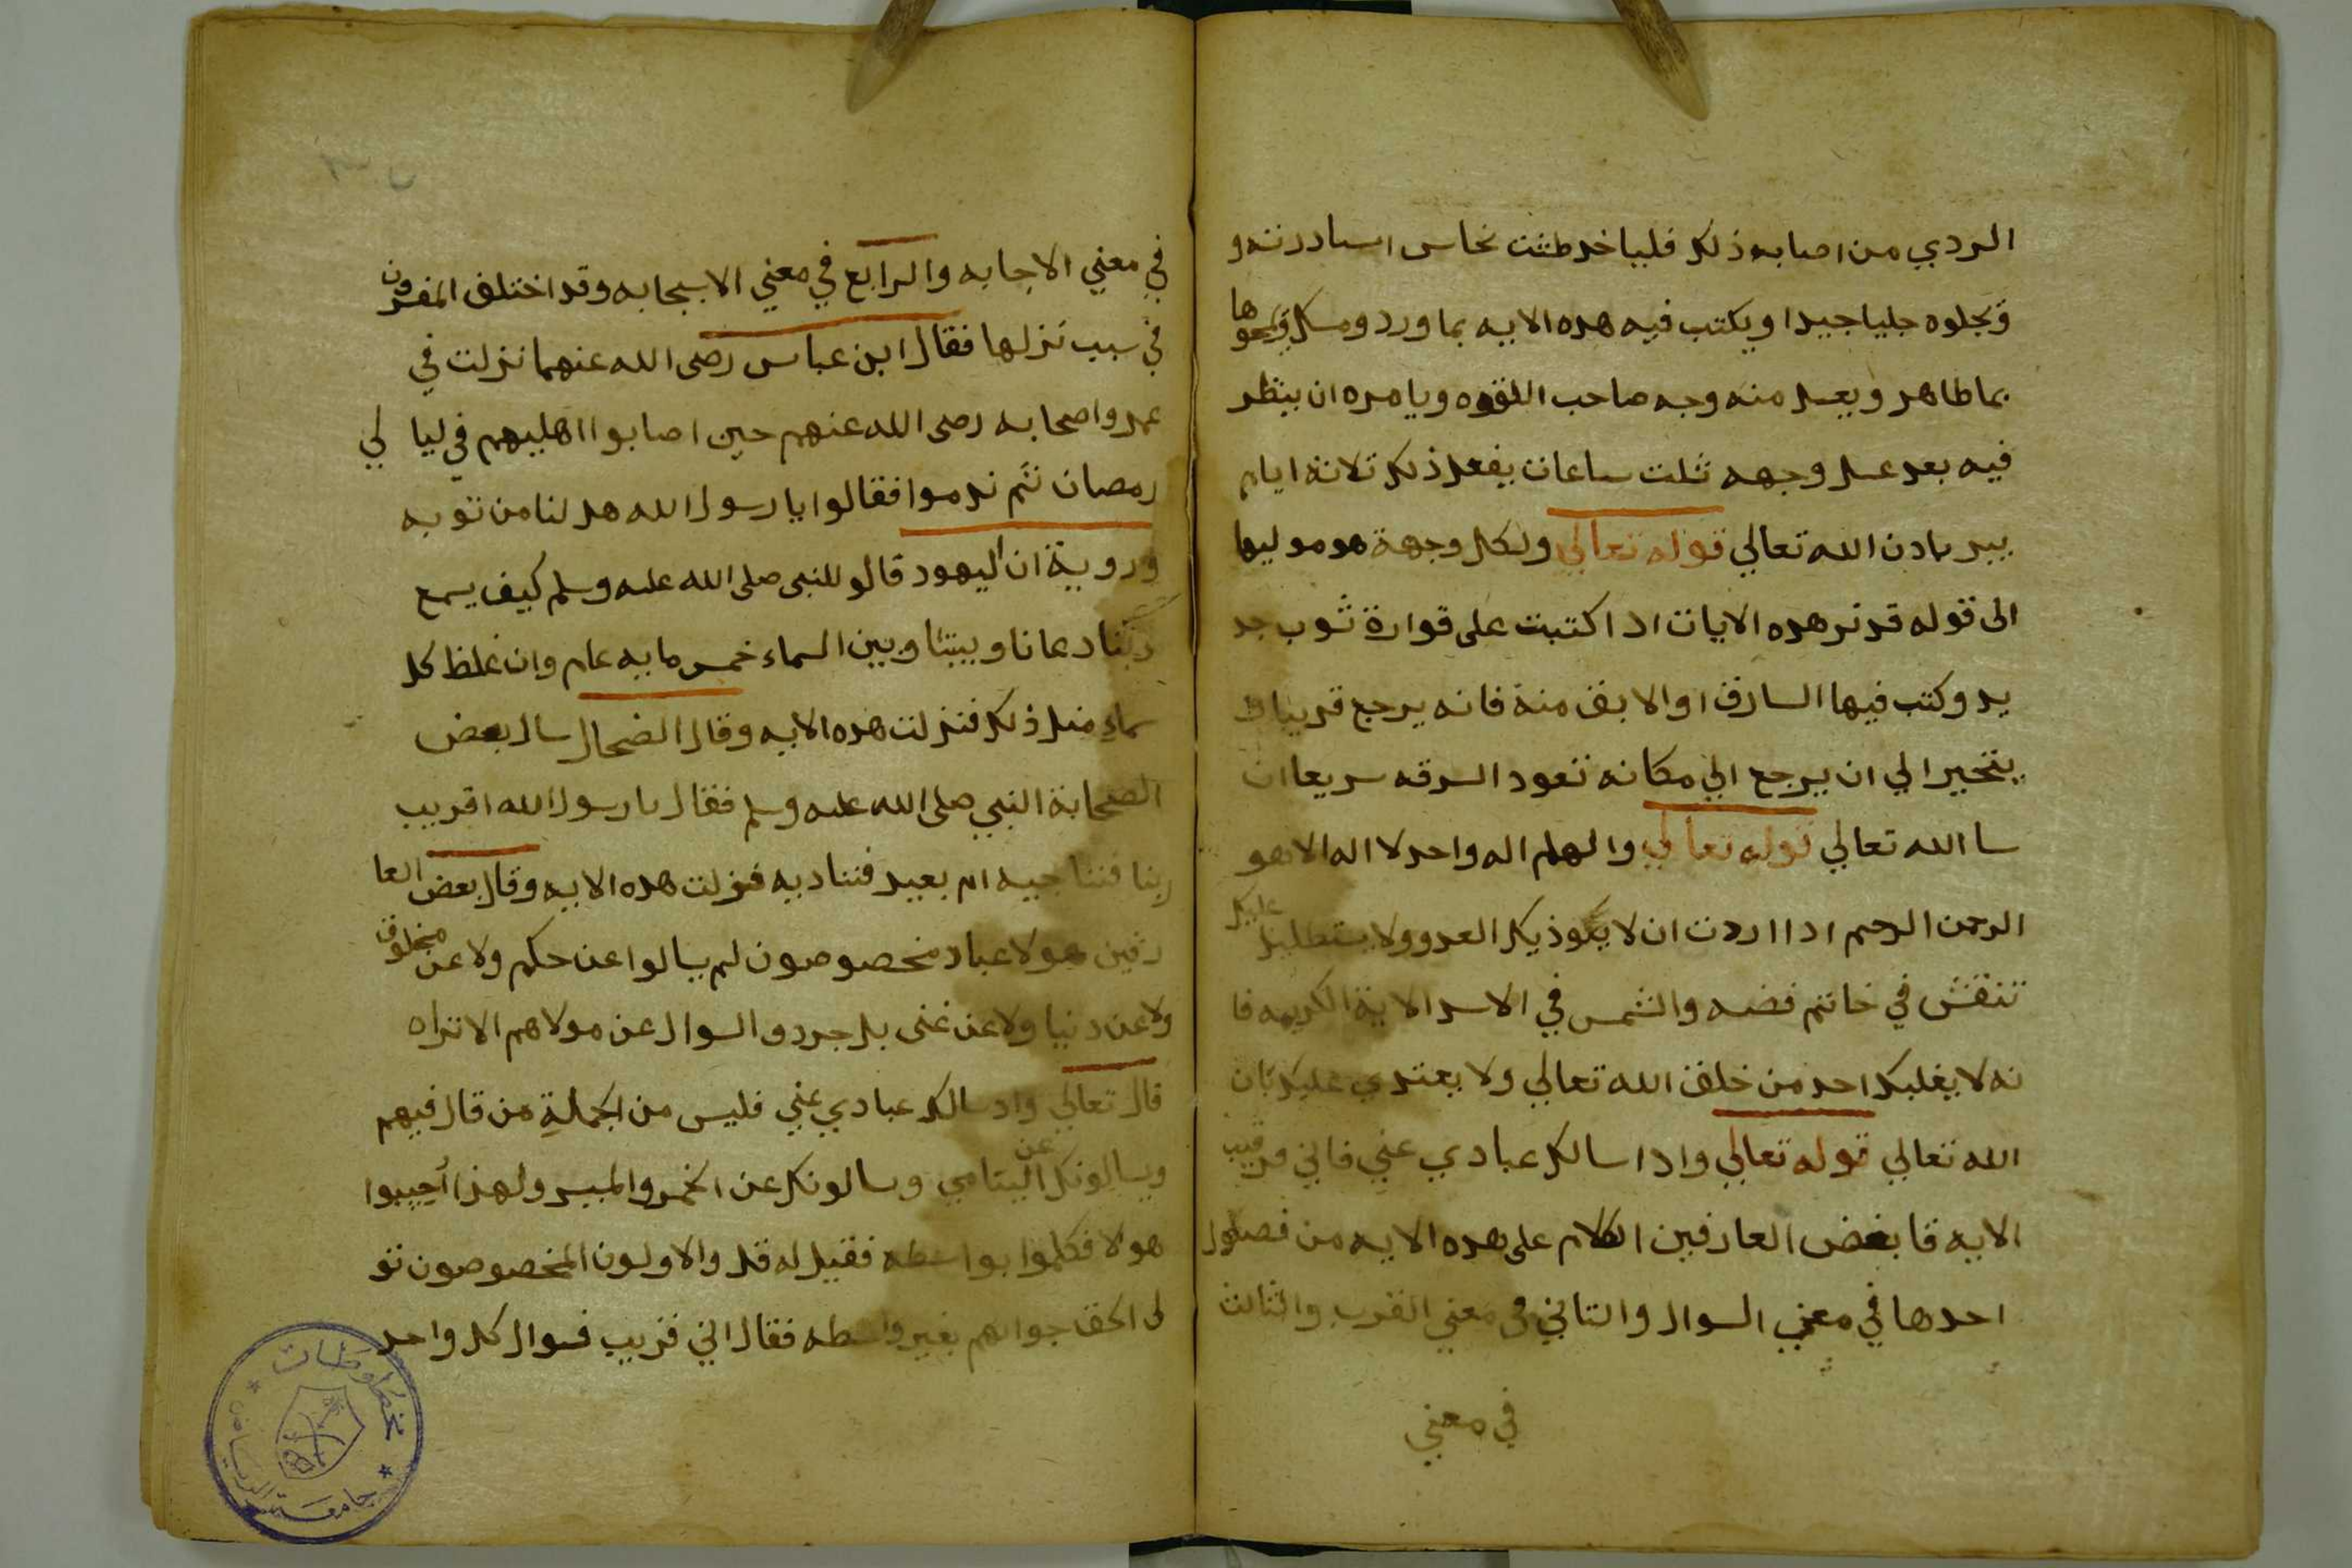 الردي من اصابه ذلك فليا خد طشت نحاس اسبادرنه و
وتجلوه جليا جيدا ويكتب فيه هده الايه بما ورد ومسك ويمحوها
بما طاهر ويغسل منه وجه صاحب اللقوه ويامره ان ينظر
فيه بعد غسل وجهه ثلت ساعات يفعل ذلك ثلاثة ايام
يبر بادن الله تعالي قوله تعالي ولكل وجهة هو موليها
الى قوله قدير هده الايات ادا كتبت على قوارة ثوب جد
يد وكتب فيها السارق او الابق منة فانه يرجع قريبا
يتحير الي ان يرجع الي مكانه تعود السرقه سريعا ان
سا الله تعالي قوله تعالي والهكم اله واحد لا اله الا هو
الرحمن الرحيم ادا اردت ان لا يكوذيك العدو ولا يستطيل عليك
تنقش في خاتم فضه والشمس في الاسد الاية الكريمه فا
نه لا يغلبك احد من خلق الله تعالي ولا يعتدي عليك بان
الله تعالي قوله تعالي وادا سالك عبادي عني فاني قريب
الايه قا بعض العارفين الكلام على هده الايه من فصول
احدها في معني السوال والتاني في معني القرب والثالث
في معني
في معني الاجابه والرابع في معني الاسجابه وقد اختلف المفسرون
في سبب نزلها فقال ابن عباس رضى الله عنهما نزلت في
عمر واصحابه رضى الله عنهم حين اصابوا اهليهم في ليا لي
رمضان ثم ندموا فقالوا يا رسول الله هل لنا من توبه
وروية ان اليهود قالو للنبى صلى الله عليه وسلم كيف يسمع
ربنا دعانا وبيننا وبين السماء خمس مايه عام وان غلظ كل
سماء مثل ذلك فنزلت هذه الايه وقال الضحاك سال بعض
الصحابة النبي صلى الله عليه وسلم فقال يا رسول الله اقريب
ربنا فنناجيه ام بعيد فنناديه فنزلت هده الايه وقال بعض العا
رفين هولا عباد مخصوصون لم يسالوا عن حكم ولا عن مخلوق
ولا عن دنيا ولا عن غنى بل جردو السوال عن مولاهم الا تراه
قال تعالي وادا سالك عبادي عني فليس من الجملة من قال فيهم
ويسالونك عن اليتامي ويسالونك عن الخمر والميسر ولهذا أجيبوا
هولا فكلموا بواسطه فقيل له قل والاولون المخصوصون تو
لى الحق جوابهم بغير واسطه فقال اني قريب فسوال كل واحد
مخطوطات
جامعة الرياض